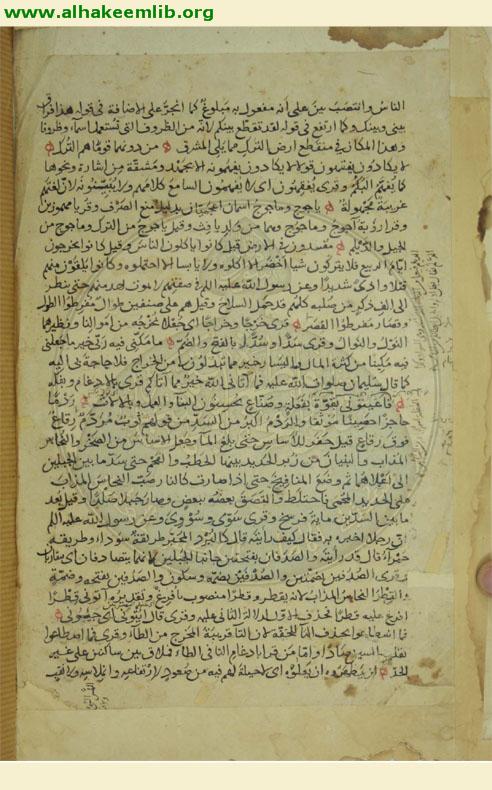 www.alhakeemlib.org
الناس وانتصب بين على أنه مفعول به مبلوغ كما انجر على الاضافة في قوله هذا فراق
بيني وبينك وكما ارتفع في قوله لقد تقطع بينكم لانه من الظروف التي تستعمل اسماء وظروفا
وهذا المكان في منقطع ارض الترك مما يلي المشرق من دونهما قوما هم الترك
لا يكادون يفقهون قولا لا يكادون يفهمونه الا بجهد ومشقة من اشارة ونحوها
كما يفهم البكم وقرئ يفقهون اى لا يفهمون السامع كلامهم ولا يبينونه لان لغتهم
غريبة مجهولة ياجوج وماجوج اسمان اعجميان بدليل منع الصرف وقريا مهموزين
وقرا رؤبة آجوج وماجوج وهما من ولد يافث وقيل ياجوج من الترك وماجوج من
الجيل والديلم مفسدون في الارض قيل كانوا ياكلون الناس وقيل كانوا يخرجون
ايام الربيع فلا يتركون شيا اخضر الا اكلوه ولا يابسا الا احتملوه وكانوا يلقون منهم
قتلا واذى شديدا وعن رسول الله عليه السلم في صفتهم لا يموت احد منهم حتى ينظر
الى الف ذكر من صلبه كلهم قد حمل السلاح وقيل هم على صنفين طوال مفرطوا الطول
وقصار مفرطوا القصر قرئ خرجا وخراجا اى جعلا نخرجه من اموالنا ونظيرهما
النول والنوال وقرئ سدا وسدا بالفتح والضم ما مكني فيه ربي خير ما جعلني
فيه مكينا من كثرة المال واليسار خير مما تبذلون لى من الخراج فلا حاجة بي اليه
كما قال سليمان صلوات الله عليه فما آتاني الله خير مما آتاكم قرئ بالادغام وبفكه
فاعينوني بقوة بفعلة وصناع يحسنون البنا والعمل وبالآلات ردما
حاجزا حصينا موثقا والردم اكبر من السد من قولهم ثوب مردم رقاع
فوق رقاع قيل حفر للاساس حتى بلغ الما وجعل الاساس من الصخر والنحاس
المذاب والبنيان من زبر الحديد بينهما الحطب والفحم حتى سد ما بين الجبلين
الى اعلاهما ثم وضع المنافيخ حتى اذا صارت كالنار صب النحاس المذاب
على الحديد المحمى فاختلط والتصق بعضه ببعض وصار جبلا صلدا وقيل بعد
ما بين السدين ماية فرسخ وقرئ سوى وسووى وعن رسول الله عليه السلم
ان رجلا اخبره به فقال كيف رايته قال كالبرد المحبر طريقة سوداء وطريقة
حمراء قال قد رايته والصدفان بفتحتين جانبا الجبلين لانهما يتصادفان اى يتقابلان
وقرئ الصدفين بضمتين والصدفين بضمة وسكون والصدفين بفتحة وضمة
والقطر النحاس المذاب لانه يقطر وقطرا منصوب بافرغ وتقديره آتوني قطرا
افرغ عليه قطرا فحذف الاول لدلالة الثاني عليه وقرئ قال ائتوني اى جيئوني
فما اسطاعوا بحذف التا للخفة لان التا قريبة المخرج من الطاء وقرئ فما اصطاعوا
بقلب السين صادا واما من قرا بادغام التا في الطاء فملاق بين ساكنين على غير
الحد ان يظهروه ان يعلوه اى لا حيلة لهم فيه من صعود لارتفاعه وانملاسه ولا نقب